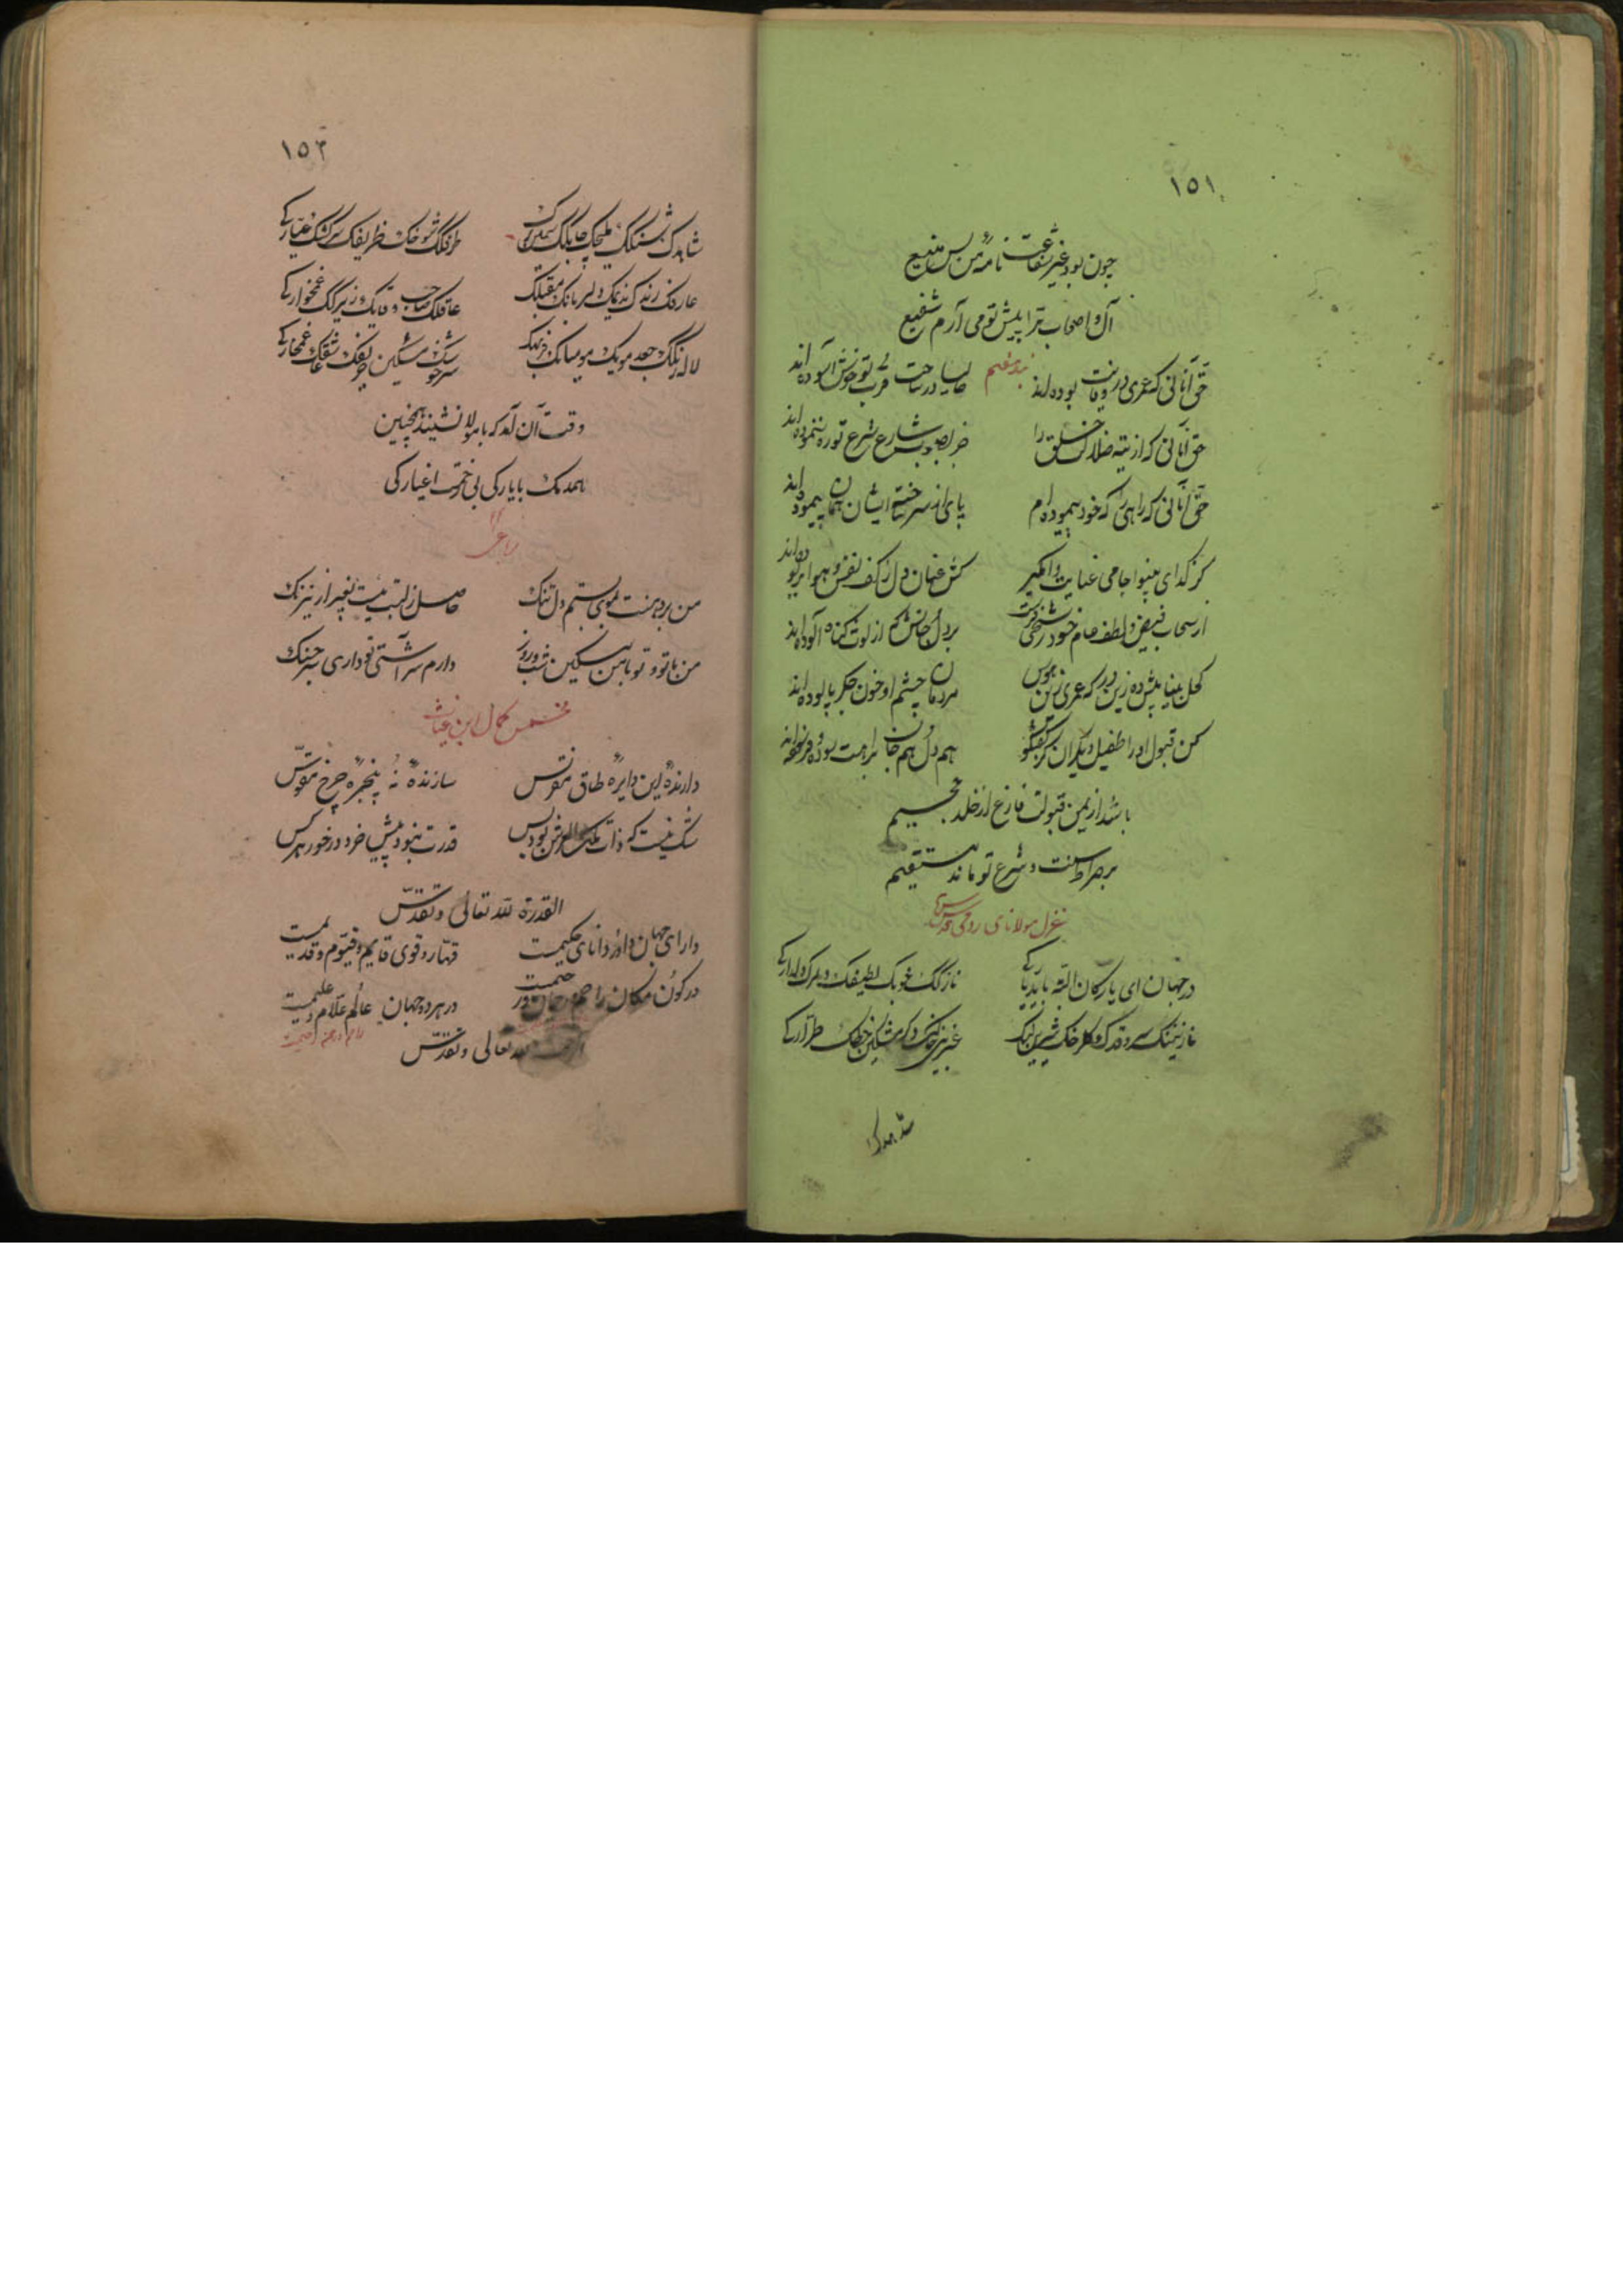 ١٥١
چون بود غیر شفاعت نامهٔ من بس منیع
آل و اصحاب ترا پیش تو می آرم شفیع
بند هفتم
حق آنانی که عمری در وفایت بوده اند حالیا در ساحت قرب تو خوش آسوده اند
حق آنانی که از تیه ضلالت خلق را جز بصوب شارع شرع تو ره ننموده اند
حق آنانی که راهی را که خود پیموده ام پای از سر ساخته ایشان همان پیموده اند
کز گدای بینوا جامی عنایت وامگیر کش عنان دل ز کف نفس و هوا بربوده اند
از سحاب فیض و لطف عام خود رشحی فرست بر دل و جانش کم از لوث گناه آلوده اند
کحل بینایش ده زین در که عمری زین هوس مردمان چشم او خون جگر پالوده اند
کن قبول او را طفیل دیگران کز گفتگو هم دل و هم جان براهت بوده و فرسوده اند
باشد از یمن قبولت فارغ از خلد و جحیم
بر صراط سنت و شرع تو ماند مستقیم
غزل مولانای رومی قدس سره
در جهان ای یارکان البته باید یارکی نازکک خوبک لطیفک دلبرک دلدارکی
نازنینک سرو قدک گلرخک شیرین لبک عنبرین خالک دگر مشکین خطک طرارکی
شاهدک
١٥٢
شاهدک شنگک ملیحک چابکک سمین برک طرفکک شوخک ظریفک سرکشک عیارکی
عارفک رندک ندیمک دلبرمانک مقبلک عاقلک صاحب وفایک زیرکک غمخوارکی
لاله رنگک جعد مویک مو میانک فربهک سرخوشک مسکین حریفک عاشقک غمخوارکی
وقت آن آمد که با مولا نشیند همچنین
همدمک با یارکی بی زحمت اغیارکی
رباعی
من بر دهنت بموی بستم دل تنگ حاصل ز لبت نیست بغیر از نیرنگ
من با تو و تو با من مسکین شب و روز دارم سر آشتی تو داری سر جنگ
مخمس کمال ابن غیاث
دارندهٔ این دایرهٔ طاق مقرنس سازندهٔ نُه پنجرهٔ چرخ مقوس
شک نیست که ذات ملک العرش بود بس قدرت نبود پیش خرد در خور هر کس
القدرة لله تعالی و تقدس
دارای جهان داور دانای حکیمست قهار و قوی قایم و قیوم و قدیمست
در کون و مکان راحم و رحمان و رحیمست در هر دو جهان عالم و علام و علیمست
لله تعالی و تقدس